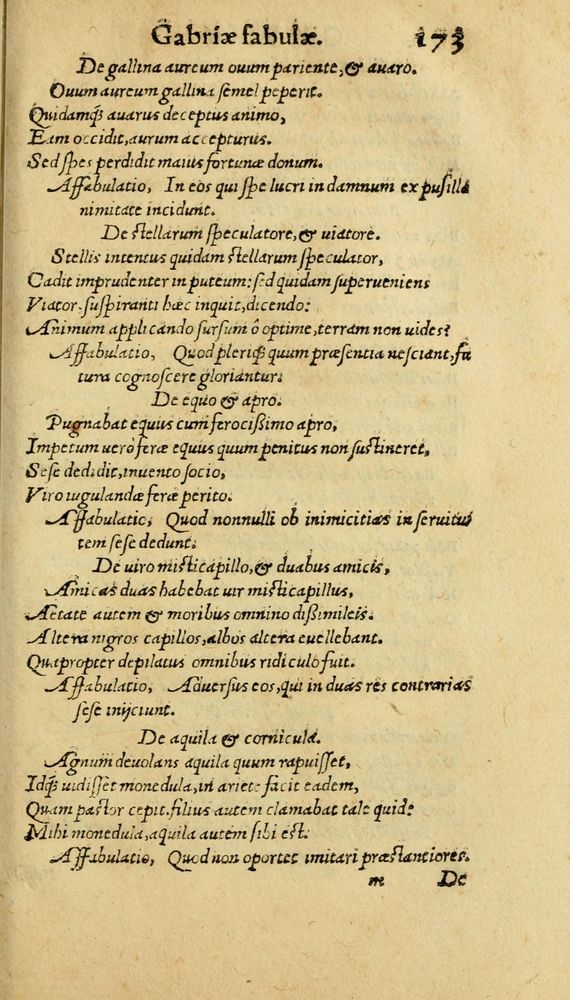 Gabriæ fabulæ. 173
De gallina aureum ouum pariente, & auaro.
Ouum aureum gallina semel peperit.
Quidamq́; auarus deceptus animo,
Eam occidit, aurum accepturus.
Sed spes perdidit maius fortunæ donum.
Affabulatio, In eos qui spe lucri in damnum ex pusilla
nimitate incidunt.
De stellarum speculatore, & uiatore.
Stellis intentus quidam stellarum speculator,
Cadit imprudenter in puteum: sed quidam superueniens
Viator. suspiranti hæc inquit, dicendo:
Animum applicando sursum ô optime, terram non uides?
Affabulatio, Quod pleriq́; quum præsentia nesciant, fu
tura cognoscere gloriantur.
De equo & apro.
Pugnabat equus cum ferocißimo apro,
Impetum uerò feræ equus quum penitus non sustineret,
Sese dedidit, inuento socio,
Viro iugulandæ feræ perito.
Affabulatio, Quod nonnulli ob inimicitias in seruitu
tem sese dedunt.
De uiro misticapillo, & duabus amicis,
Amicas duas habebat uir misticapillus,
Aetate autem & moribus omnino dißimileis.
Altera nigros capillos, albos altera euellebant.
Quapropter depilatus omnibus ridiculo fuit.
Affabulatio, Aduersus eos, qui in duas res contrarias
sese inijciunt.
De aquila & cornicula.
Agnum deuolans aquila quum rapuisset,
Idq́; uidisset monedula, in ariete facit eadem,
Quam pastor cepit. filius autem clamabat tale quid:
Mihi monedula, aquila autem sibi est.
Affabulatio, Quod non oportet imitari præstantiores.
m De